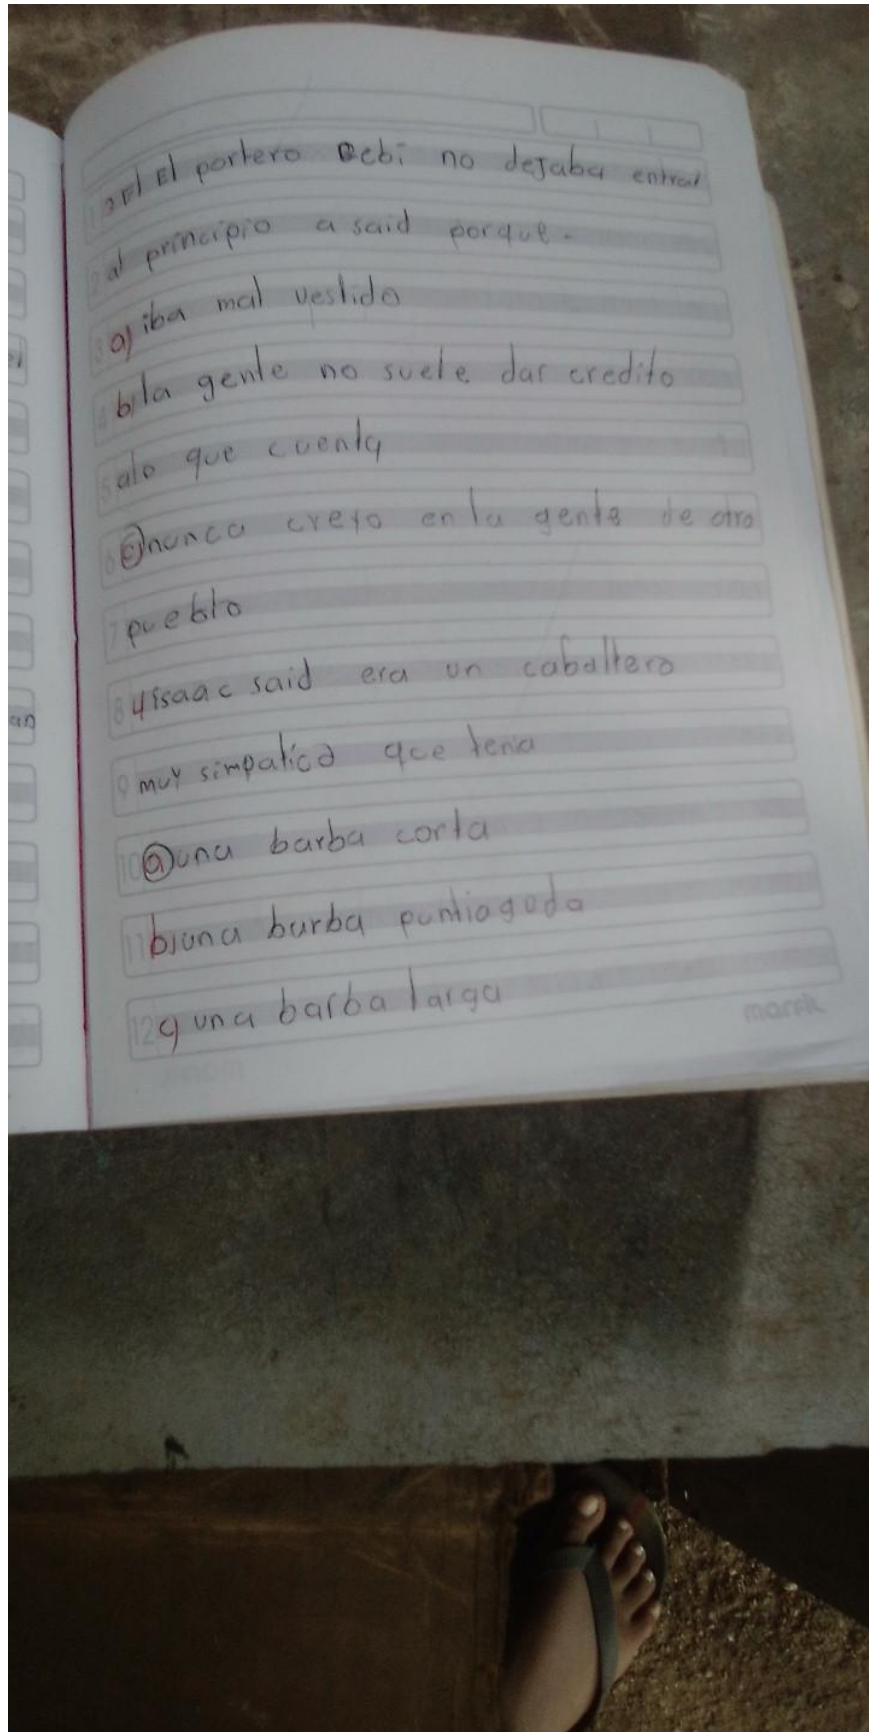 3 El El portero Bebi no dejaba entrar
al principio a said porque.
a) iba mal vestido
b) la gente no suele dar credito
alo que cuenta
c) nunca creyo en la gente de otro
pueblo
4 isaac said era un caballero
muy simpatico que tenia
a) una barba corta
b) una barba puntiagoda
c) una barba larga